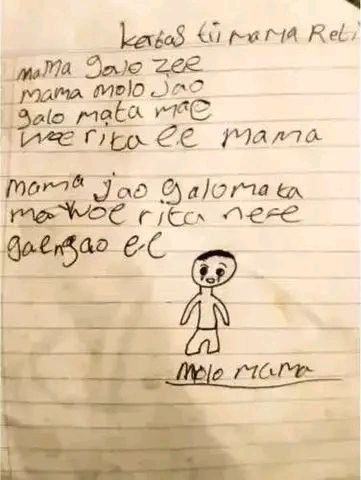 kertas tii mama Reti
mama galo zee
mama molo jao
galo mata mae
woe rita ee mama
mama jao galo mata
mae woe rita nee
gae ngao ee
molo mama